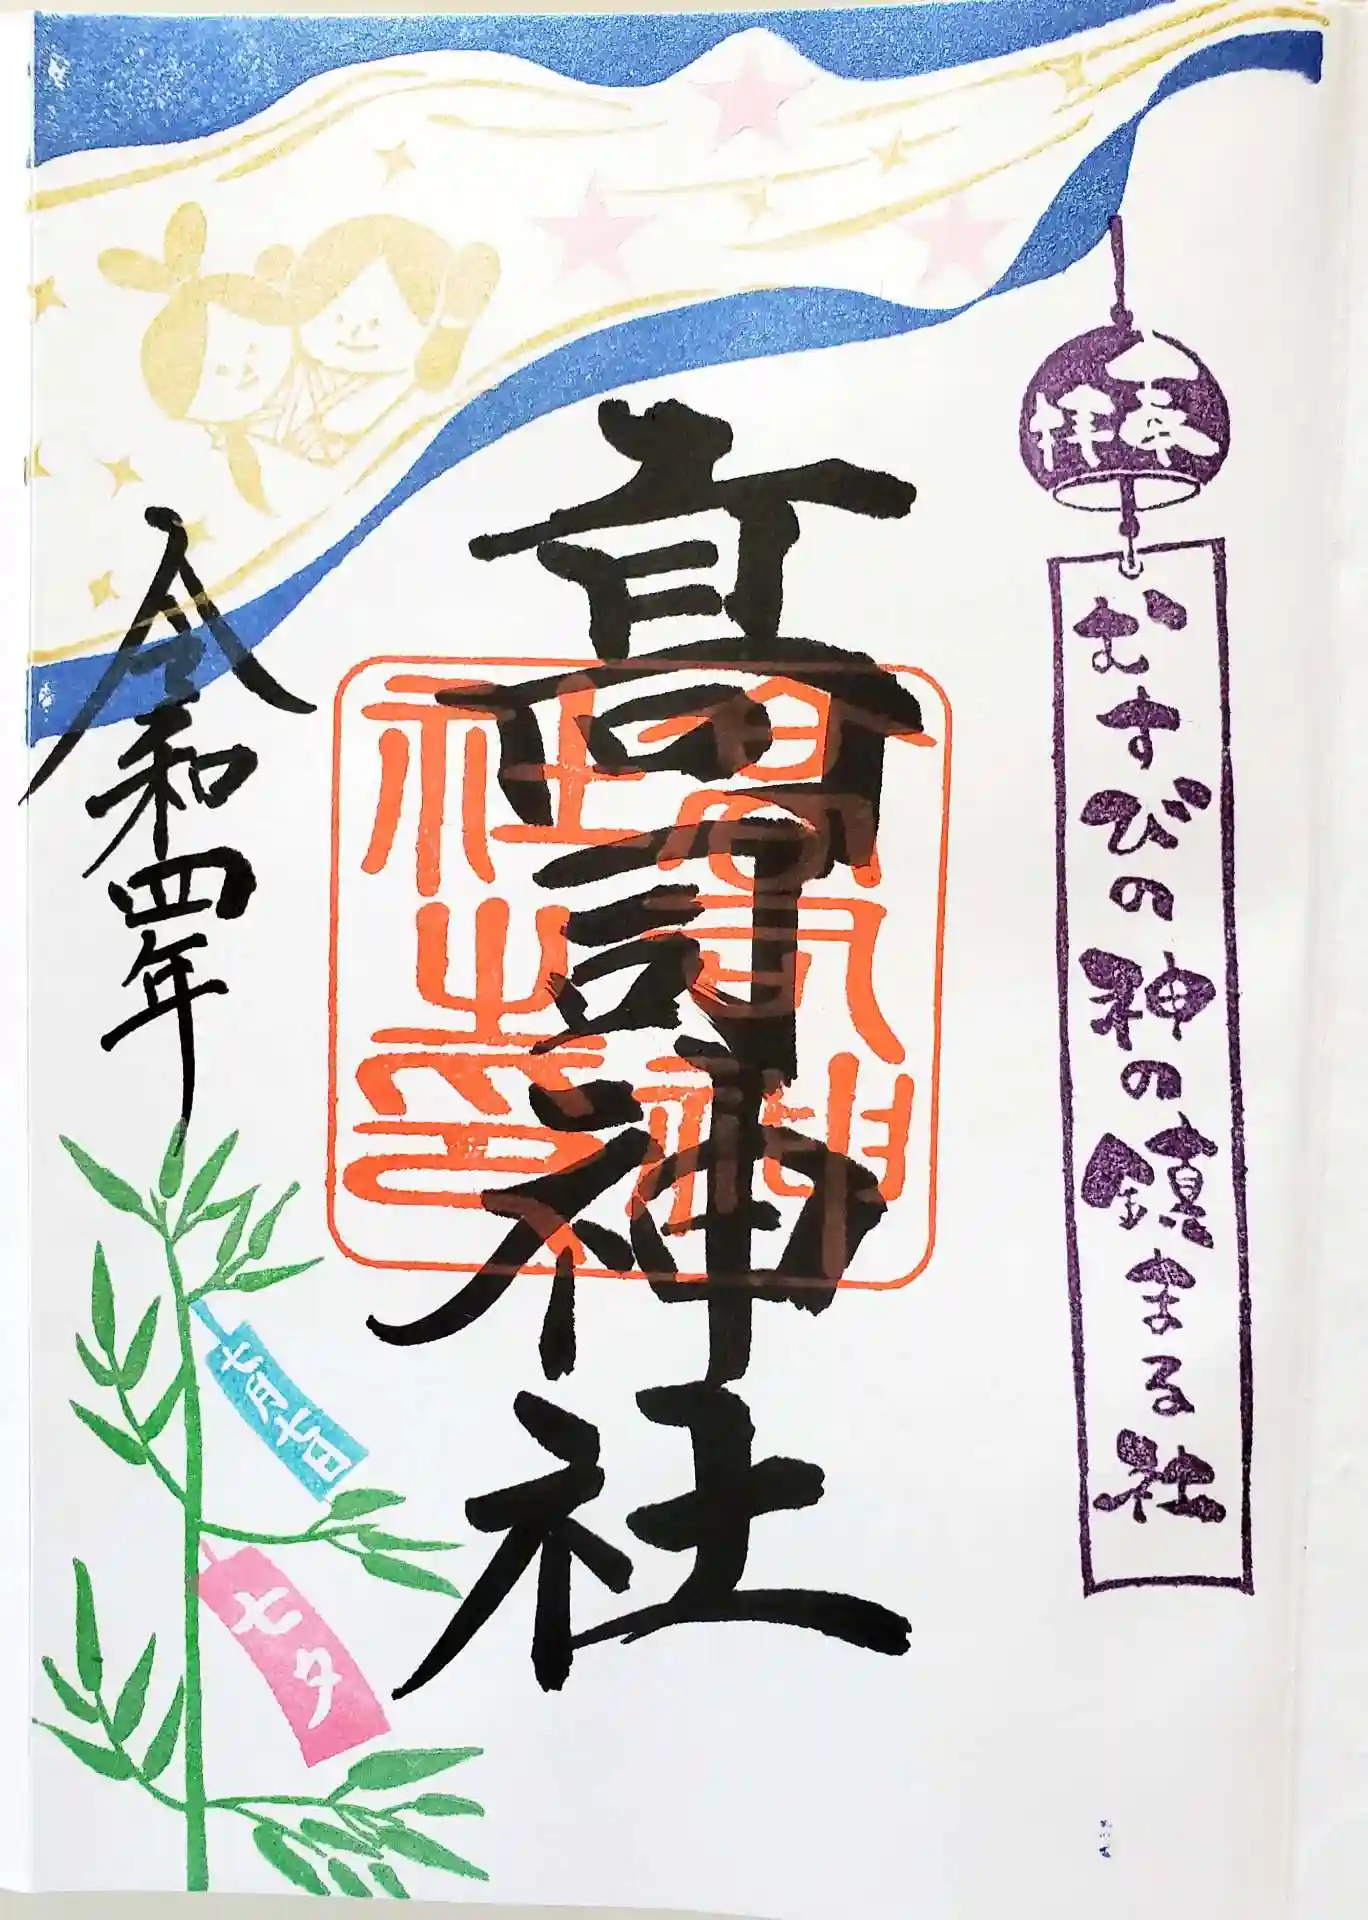 奉拝
むすびの神の鎮まる社
髙司神社
高司神
社之印
令和四年
七月七日
七夕